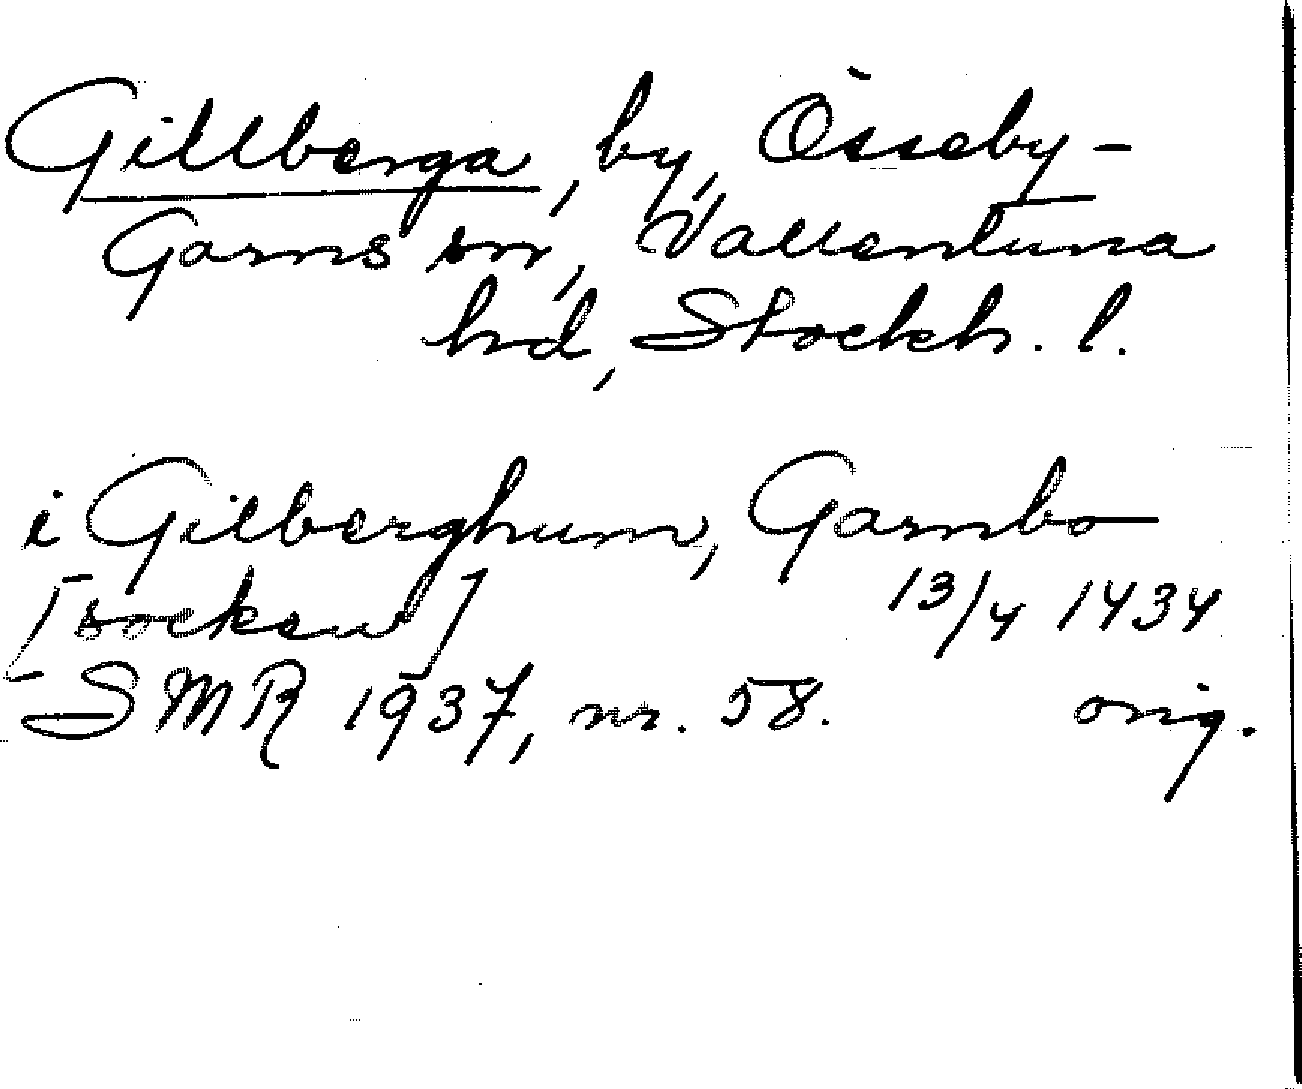 Gillberga, by, Össeby-
Garns sn, Vallentuna
hd, Stockh. l.
i Gilberghum, Garnbo
[socken] 13/4 1434
SMR 1937, nr. 58. orig.